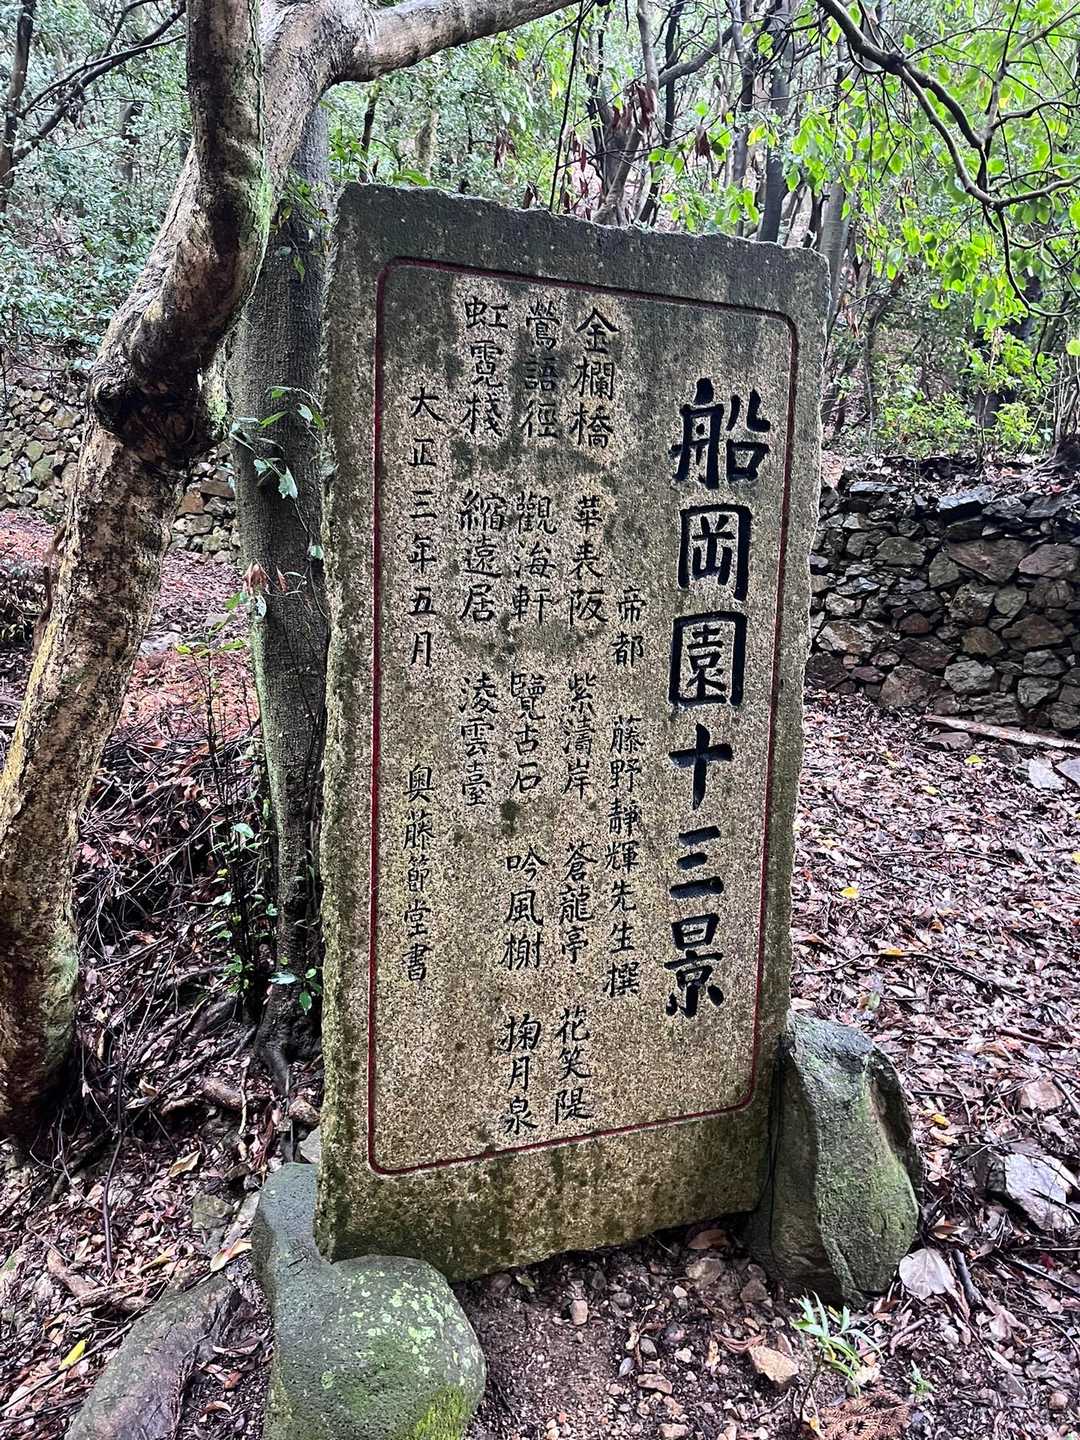 船岡園十三景
帝都 藤野靜輝先生撰
金欄橋 華表阪 紫濤岸 蒼龍亭 花笑隄
鶯語径 觀海軒 覽古石 吟風榭 掬月泉
虹霓棧 縮遠居 凌雲臺
大正三年五月 奥藤節堂書